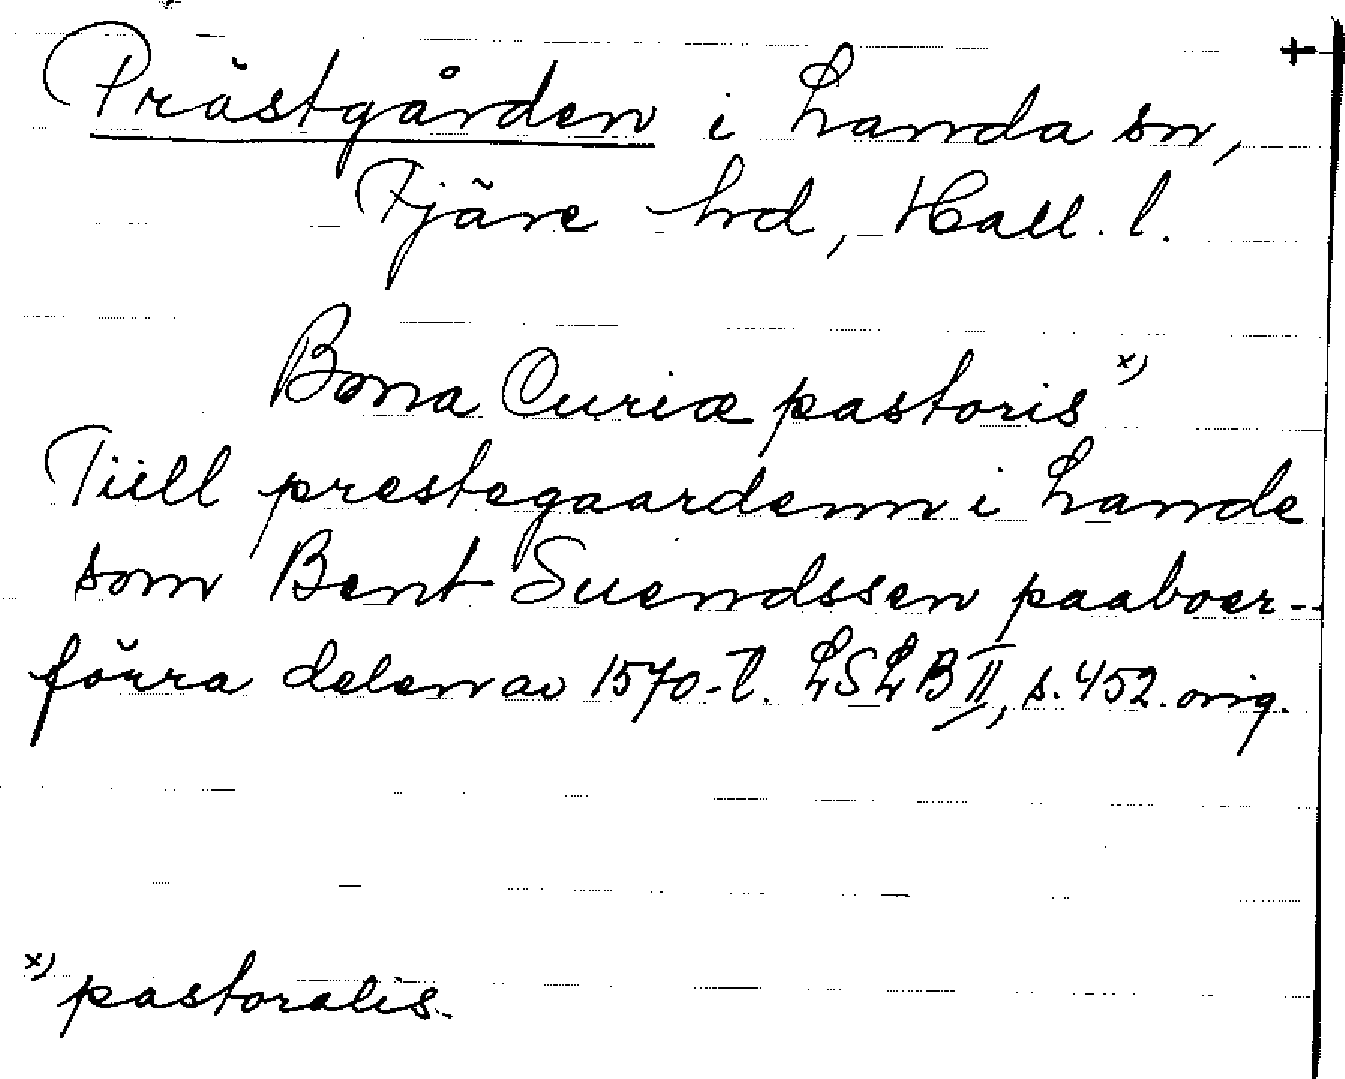 Prästgården i Landa sn,
Fjäre hd, Hall. l.
Bona Curiæ pastoris x)
Tiill prestegaardenn i Lande
som Bent Suendssen paaboer -
förra delen av 1570-t. LSLB II, s. 452. orig.
x) pastoralis.